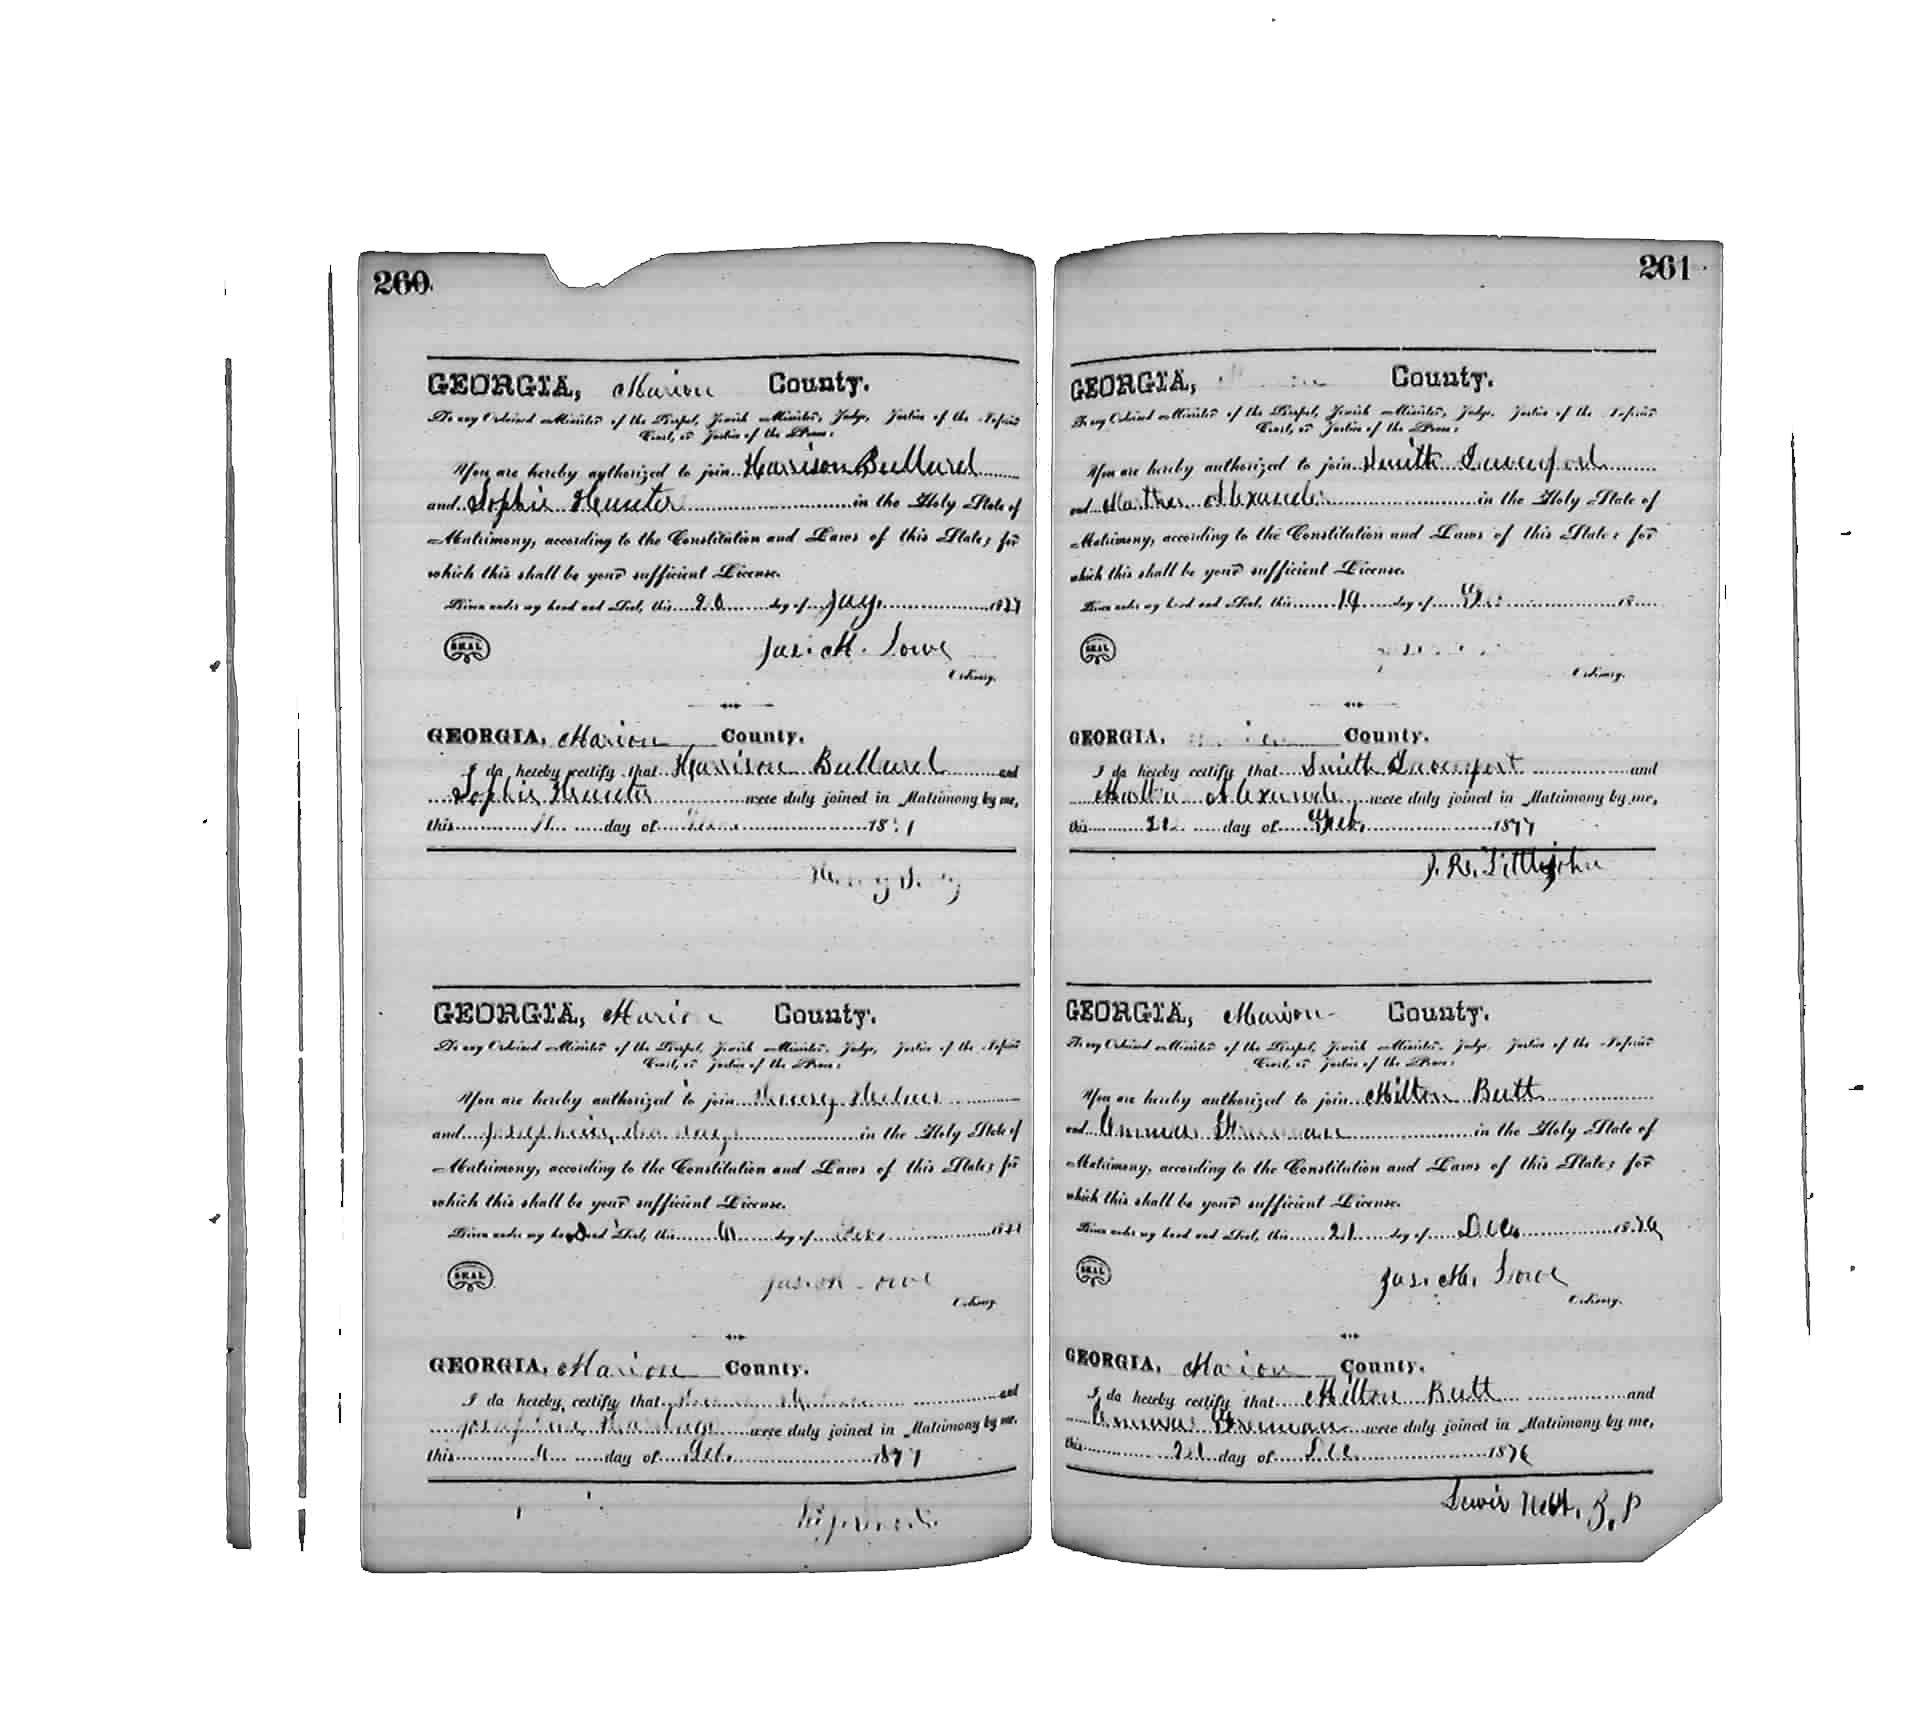 260
GEORGIA, Marion County.
To any Ordained Minister of the Gospel, Jewish Minister, Judge, Justice of the Inferior
Court, or Justice of the Peace:
You are hereby authorized to join Harrison Bullard
and Sophie Hunter in the Holy State of
Matrimony, according to the Constitution and Laws of this State; for
which this shall be your sufficient License.
Given under my hand and Seal, this day of Jay. 1877
SEAL
Jas. M. Lowe
Ordinary.
GEORGIA, Marion County.
I do hereby certify that Harrison Bullard and
Sophie Hunter were duly joined in Matrimony by me,
this day of 18
Henry
GEORGIA, Marion County.
To any Ordained Minister of the Gospel, Jewish Minister, Judge, Justice of the Inferior
Court, or Justice of the Peace:
You are hereby authorized to join Henry
and Josephine in the Holy State of
Matrimony, according to the Constitution and Laws of this State; for
which this shall be your sufficient License.
Given under my hand and Seal, this day of 18
SEAL
Jas. M. Lowe
Ordinary.
GEORGIA, Marion County.
I do hereby certify that and
were duly joined in Matrimony by me.
this day of Feb. 1877
261
GEORGIA, County.
To any Ordained Minister of the Gospel, Jewish Minister, Judge, Justice of the Inferior
Court, or Justice of the Peace:
You are hereby authorized to join Smith Davenport
and Martha Alexander in the Holy State of
Matrimony, according to the Constitution and Laws of this State; for
which this shall be your sufficient License.
Given under my hand and Seal, this 19 day of 18
SEAL
Ordinary.
GEORGIA, County.
I do hereby certify that Smith Davenport and
Martha Alexander were duly joined in Matrimony by me,
this day of Feb. 1877
J. R. Littlejohn
GEORGIA, Marion County.
To any Ordained Minister of the Gospel, Jewish Minister, Judge, Justice of the Inferior
Court, or Justice of the Peace:
You are hereby authorized to join Milton Butt
and Emma Freeman in the Holy State of
Matrimony, according to the Constitution and Laws of this State; for
which this shall be your sufficient License.
Given under my hand and Seal, this 21 day of Dec. 1876
SEAL
Jas. M. Lowe
Ordinary.
GEORGIA, Marion County.
I do hereby certify that Milton Butt and
Emma Freeman were duly joined in Matrimony by me,
this day of Dec 1876
Lewis